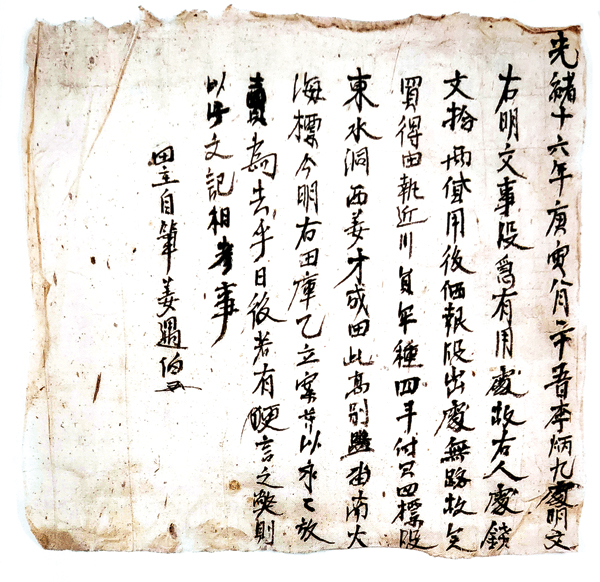 光緖十六年庚寅八月二十五日李炳九處明文
右明文事段爲有用處故右人處錢
文拾両貸用後價報段出處無路故矣
買得由執近川員牟種四斗付只四標段
東水洞西姜才成田北高別 畓南大
海標今明右田庫乙立案幷以永永放
賣爲去乎日後若有雜言之弊則
以此文記相考事
田主自筆姜遇伯